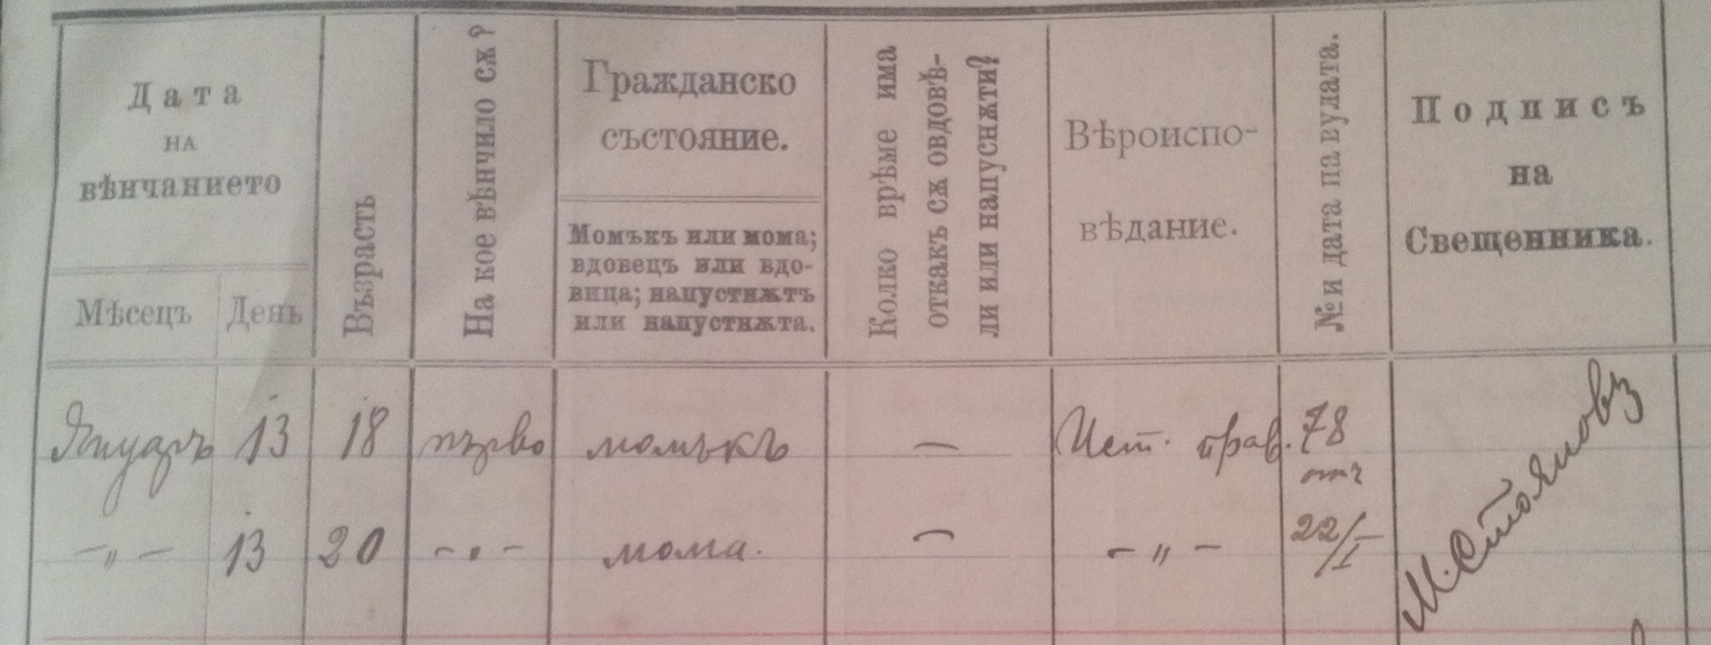 Дата
на
вѣнчанието
Мѣсецъ
День
Възрастъ
На кое вѣнчило сѫ?
Гражданско
състояние.
Момъкъ или мома;
вдовецъ или вдо-
вица; напустнѫтъ
или напустнѫта.
Колко врѣме има
откакъ сѫ овдовѣ-
ли или напуснѫти?
Вѣроиспо-
вѣдание.
№ и дата на вулата.
Подписъ
на
Свещенника.
Януаръ 13 18 първо момъкъ — Ист. прав. 78
отъ
—„— 13 20 —„— мома. — —„— 22/I
М. Стояновъ